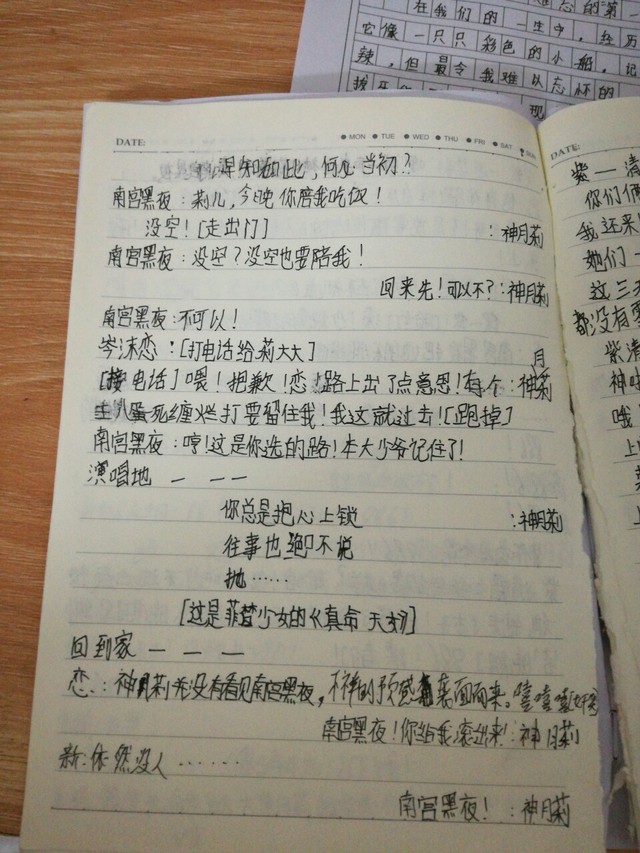 在我们的一生中，经历
它像一只只彩色的小船，记
辣，但最令我难以忘怀的
现
DATE: MON TUE WED THU FRI SAT
早知如此，何必当初？
南宫黑夜：莉儿，今晚你陪我吃饭！
没空！[走出门] ：神月莉
南宫黑夜：没空？没空也要陪我！
回来先！可以不？：神月莉
南宫黑夜：不可以！
岑沫恋：[打电话给莉大大]
[接电话]喂！抱歉！恋！路上出了点意思！有个：神月莉
王八蛋死缠烂打要留住我！我这就过去！[跑掉]
南宫黑夜：哼！这是你选的路！本大少爷记住了！
演唱地 — — —
你总是把心上锁 ：神月莉
往事也绝口不说
抛……
[这是菲梦少女的《真命天女》]
回到家 — — —
恋：神月莉并没有看见南宫黑夜，不祥的预感袭面而来。嘻嘻嘻
南宫黑夜！你给我滚出来！：神月莉
新：依然没人……
南宫黑夜！：神月莉
DATE:
紫一清
你们俩
我还来
她们一
这三天
都没有
紫清
神
哦
上
上